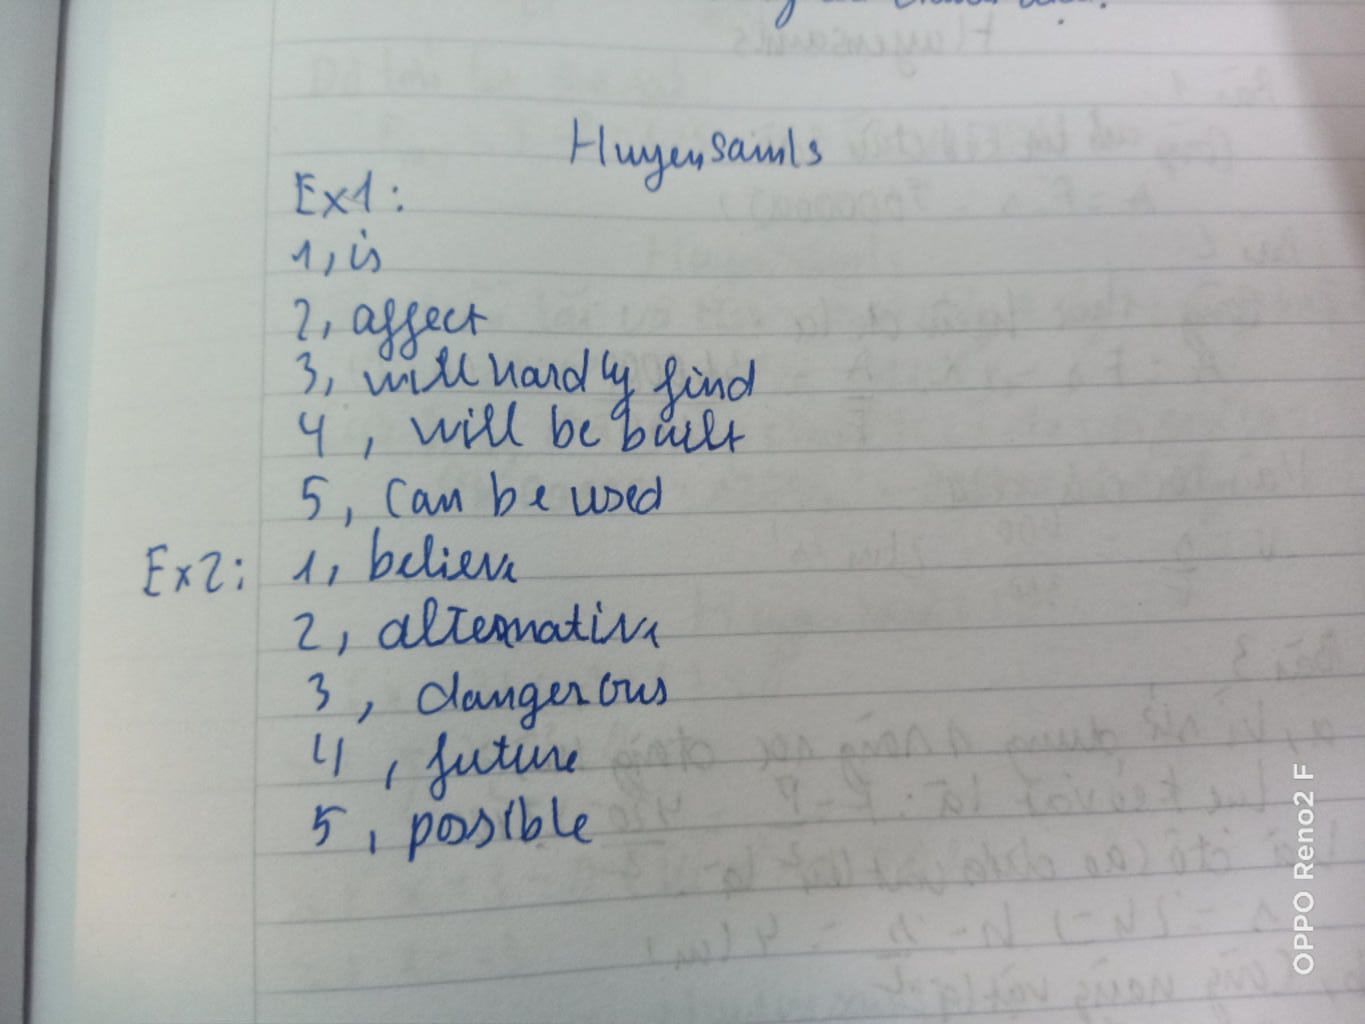 Huyensamls
Ex1:
1, is
2, affect
3, will hardly find
4, will be built
5, can be used
Ex2: 1, believe
2, alternative
3, dangerous
4, future
5, possible
OPPO Reno2 F